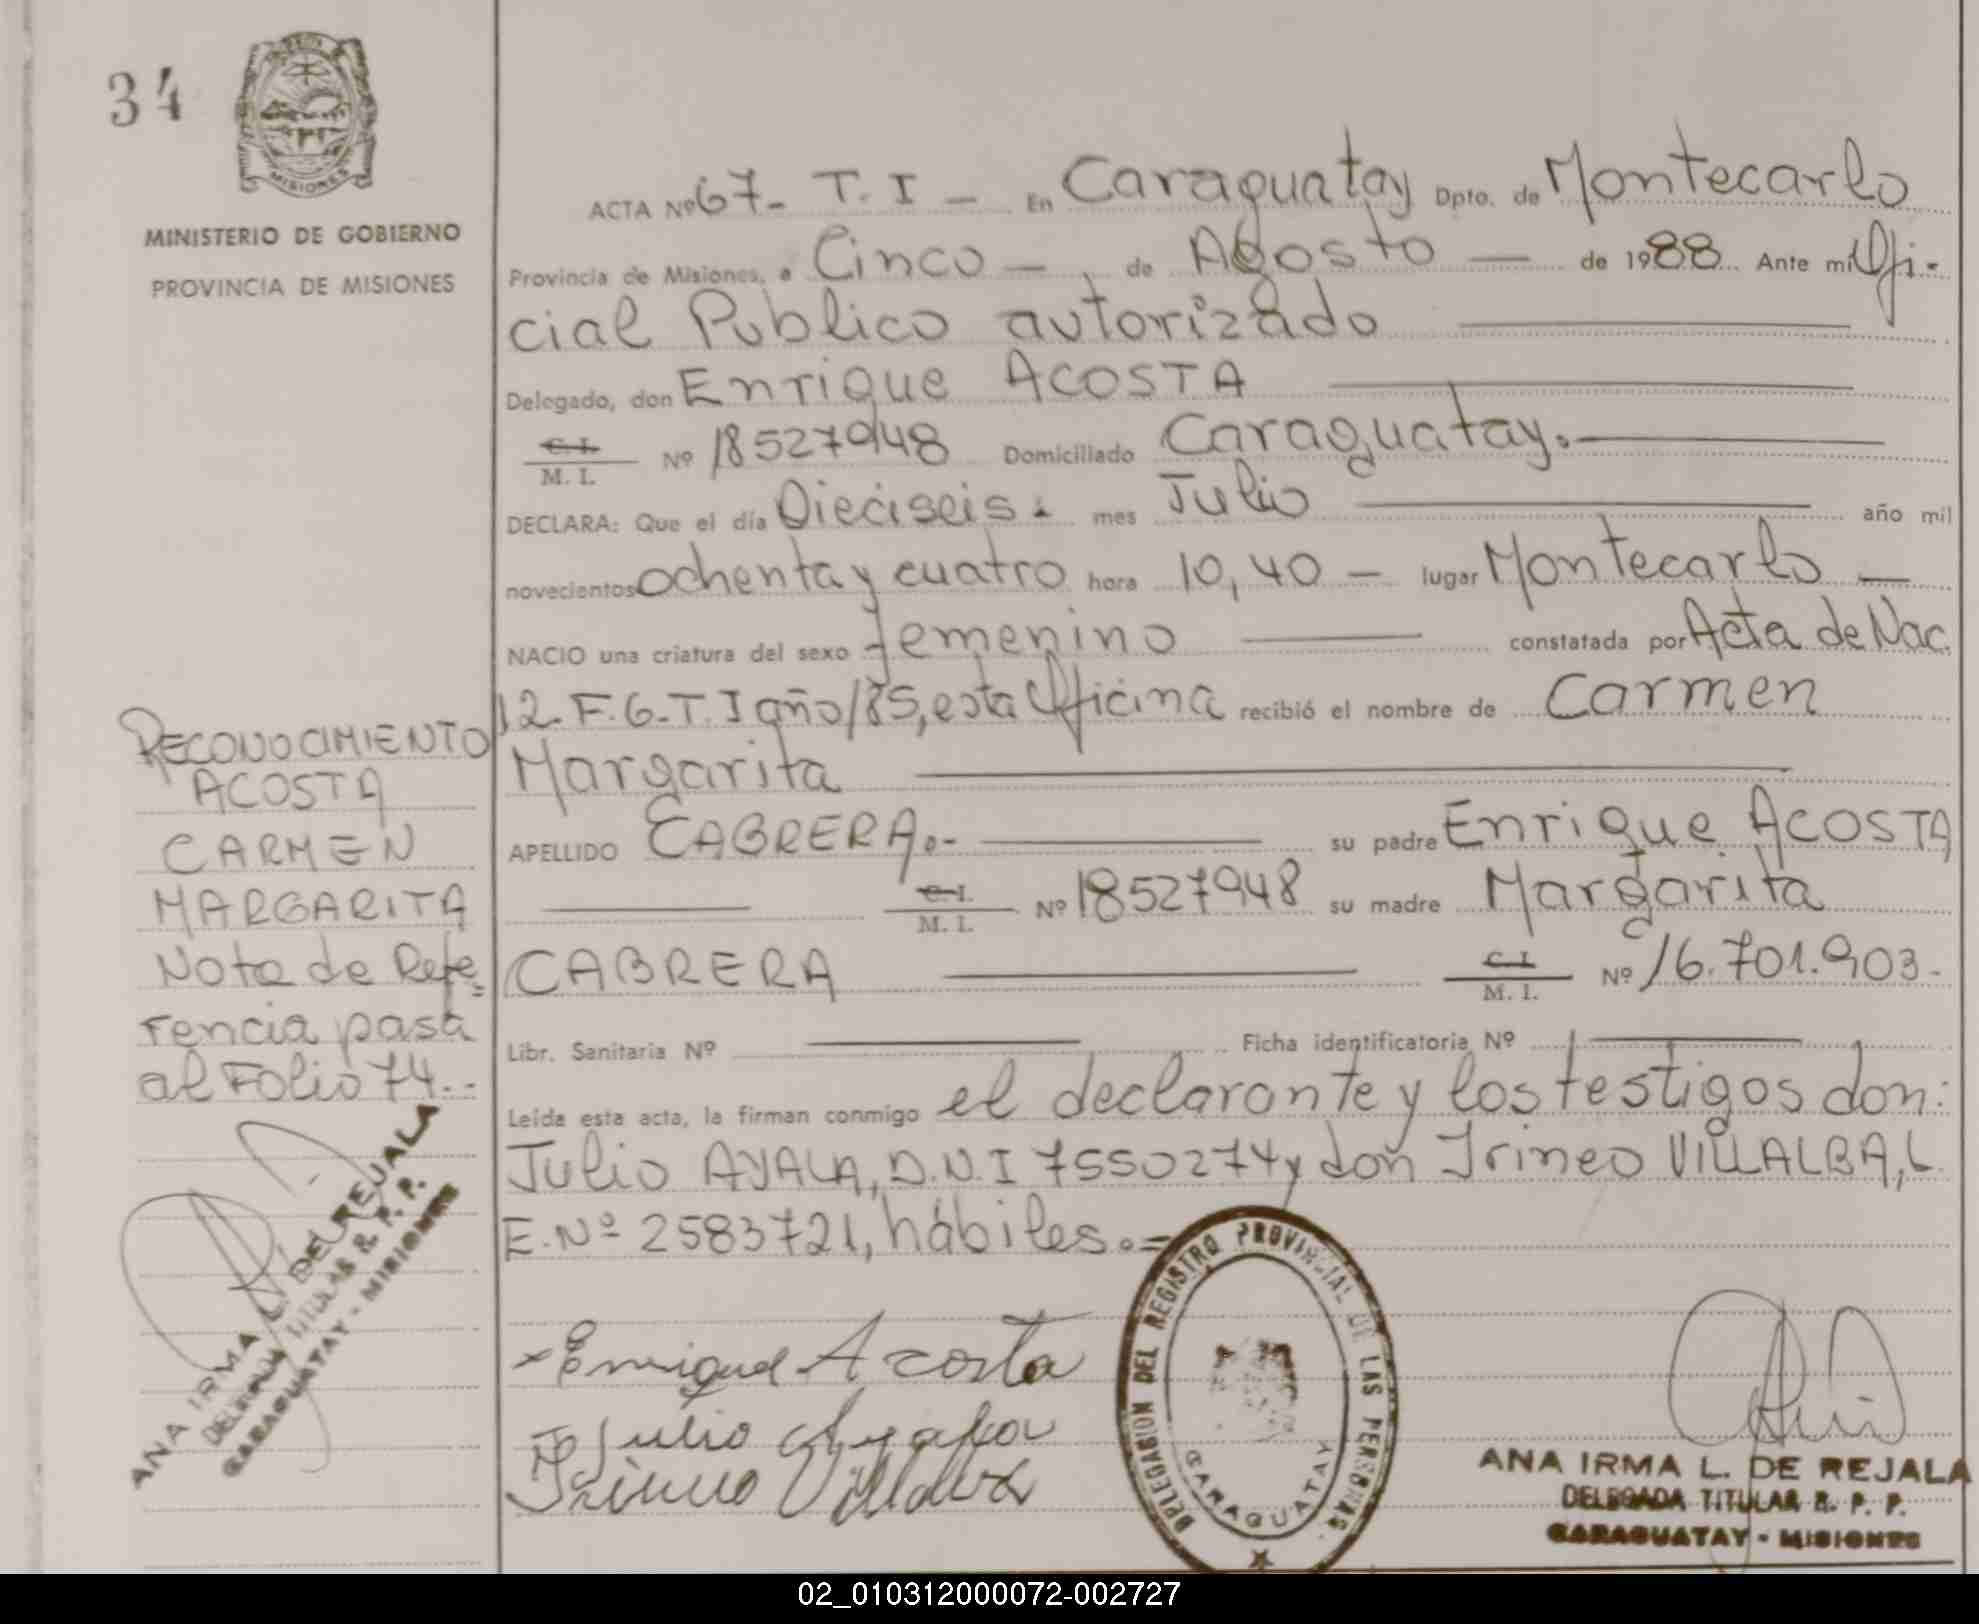 34
MISIONES
MINISTERIO DE GOBIERNO
PROVINCIA DE MISIONES
ACTA Nº 67- T. I - En Caraguatay Dpto. de Montecarlo
Provincia de Misiones, a Cinco - , de Agosto - de 1988 Ante mi Ofi-
cial Publico autorizado
Delegado, don Enrique ACOSTA
C. I.
M. I. Nº 18527948 Domiciliado Caraguatay.
DECLARA: Que el día Dieciseis. mes Julio año mil
novecientos ochenta y cuatro hora 10,40 - lugar Montecarlo -
NACIO una criatura del sexo femenino constatada por Acta de Nac.
12. F. 6. T. I año/85, esta Oficina recibió el nombre de Carmen
Margarita
APELLIDO CABRERA.- su padre Enrique ACOSTA
C. I.
M. I. Nº 18527948 su madre Margarita
CABRERA C. I.
M. I. Nº 16.701.903-
Libr. Sanitaria Nº Ficha identificatoria Nº
Leída esta acta, la firman conmigo el declarante y los testigos don:
Julio AYALA, D.N.I 7550274 y don Irineo VILLALBA, L.
E. Nº 2583721, hábiles.=
RECONOCIMIENTO
ACOSTA
CARMEN
MARGARITA
Nota de Refe=
rencia pasa
al Folio 74.--
ANA IRMA L. DE REJALA
DELEGADA TITULAR R. P. P.
CARAGUATAY - MISIONES
Enrique Acosta
Julio Ayala
Irineo Villalva
DELEGACION DEL REGISTRO PROVINCIAL DE LAS PERSONAS
CARAGUATAY
ANA IRMA L. DE REJALA
DELEGADA TITULAR R. P. P.
CARAGUATAY - MISIONES
02_010312000072-002727